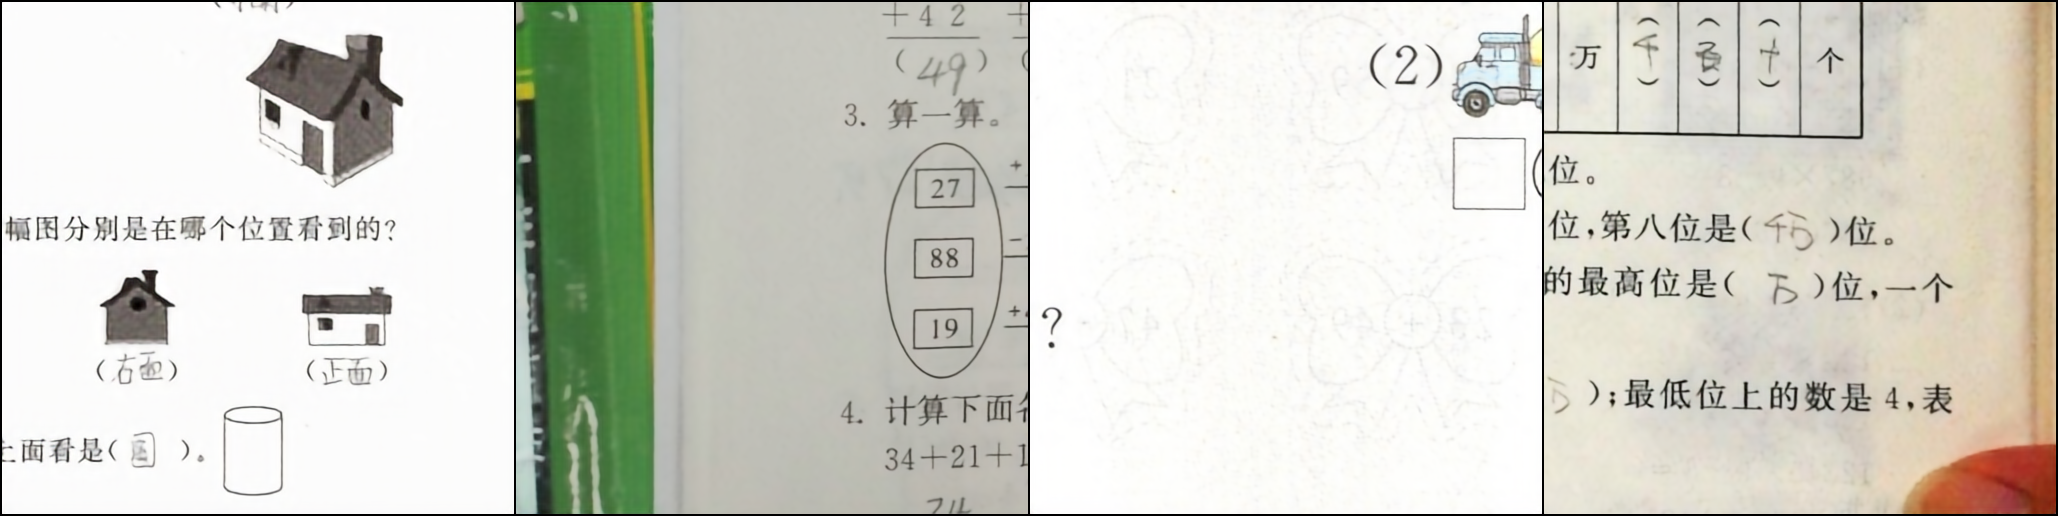 幅图分别是在哪个位置看到的?
(右面) (正面)
上面看是(圆)。
+42
(49)
3. 算一算。
27
88
19
4. 计算下面
34+21+1
74
(2)
?
万 (千) (百) (十) 个
位。
位,第八位是(千万)位。
的最高位是(万)位,一个
万);最低位上的数是 4,表